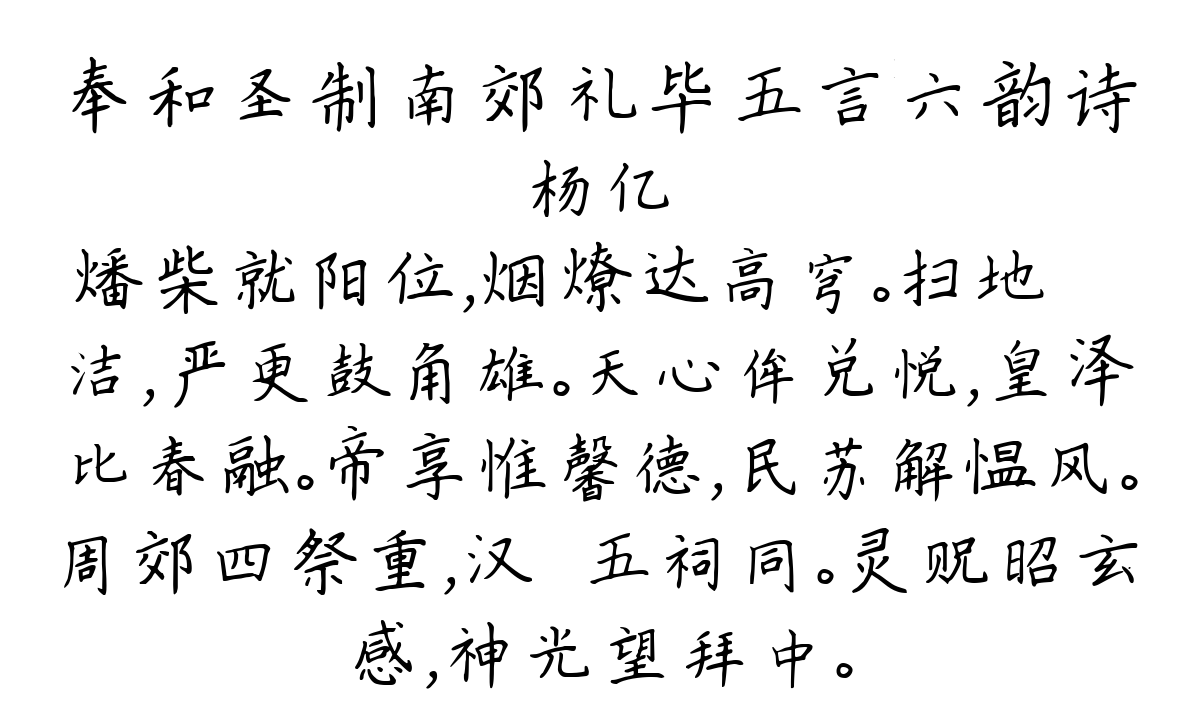 奉和圣制南郊礼毕五言六韵诗
杨亿
燔柴就阳位,烟燎达高穹。扫地
洁,严更鼓角雄。天心侔兑悦,皇泽
比春融。帝享惟馨德,民苏解愠风。
周郊四祭重,汉 五祠同。灵贶昭玄
感,神光望拜中。